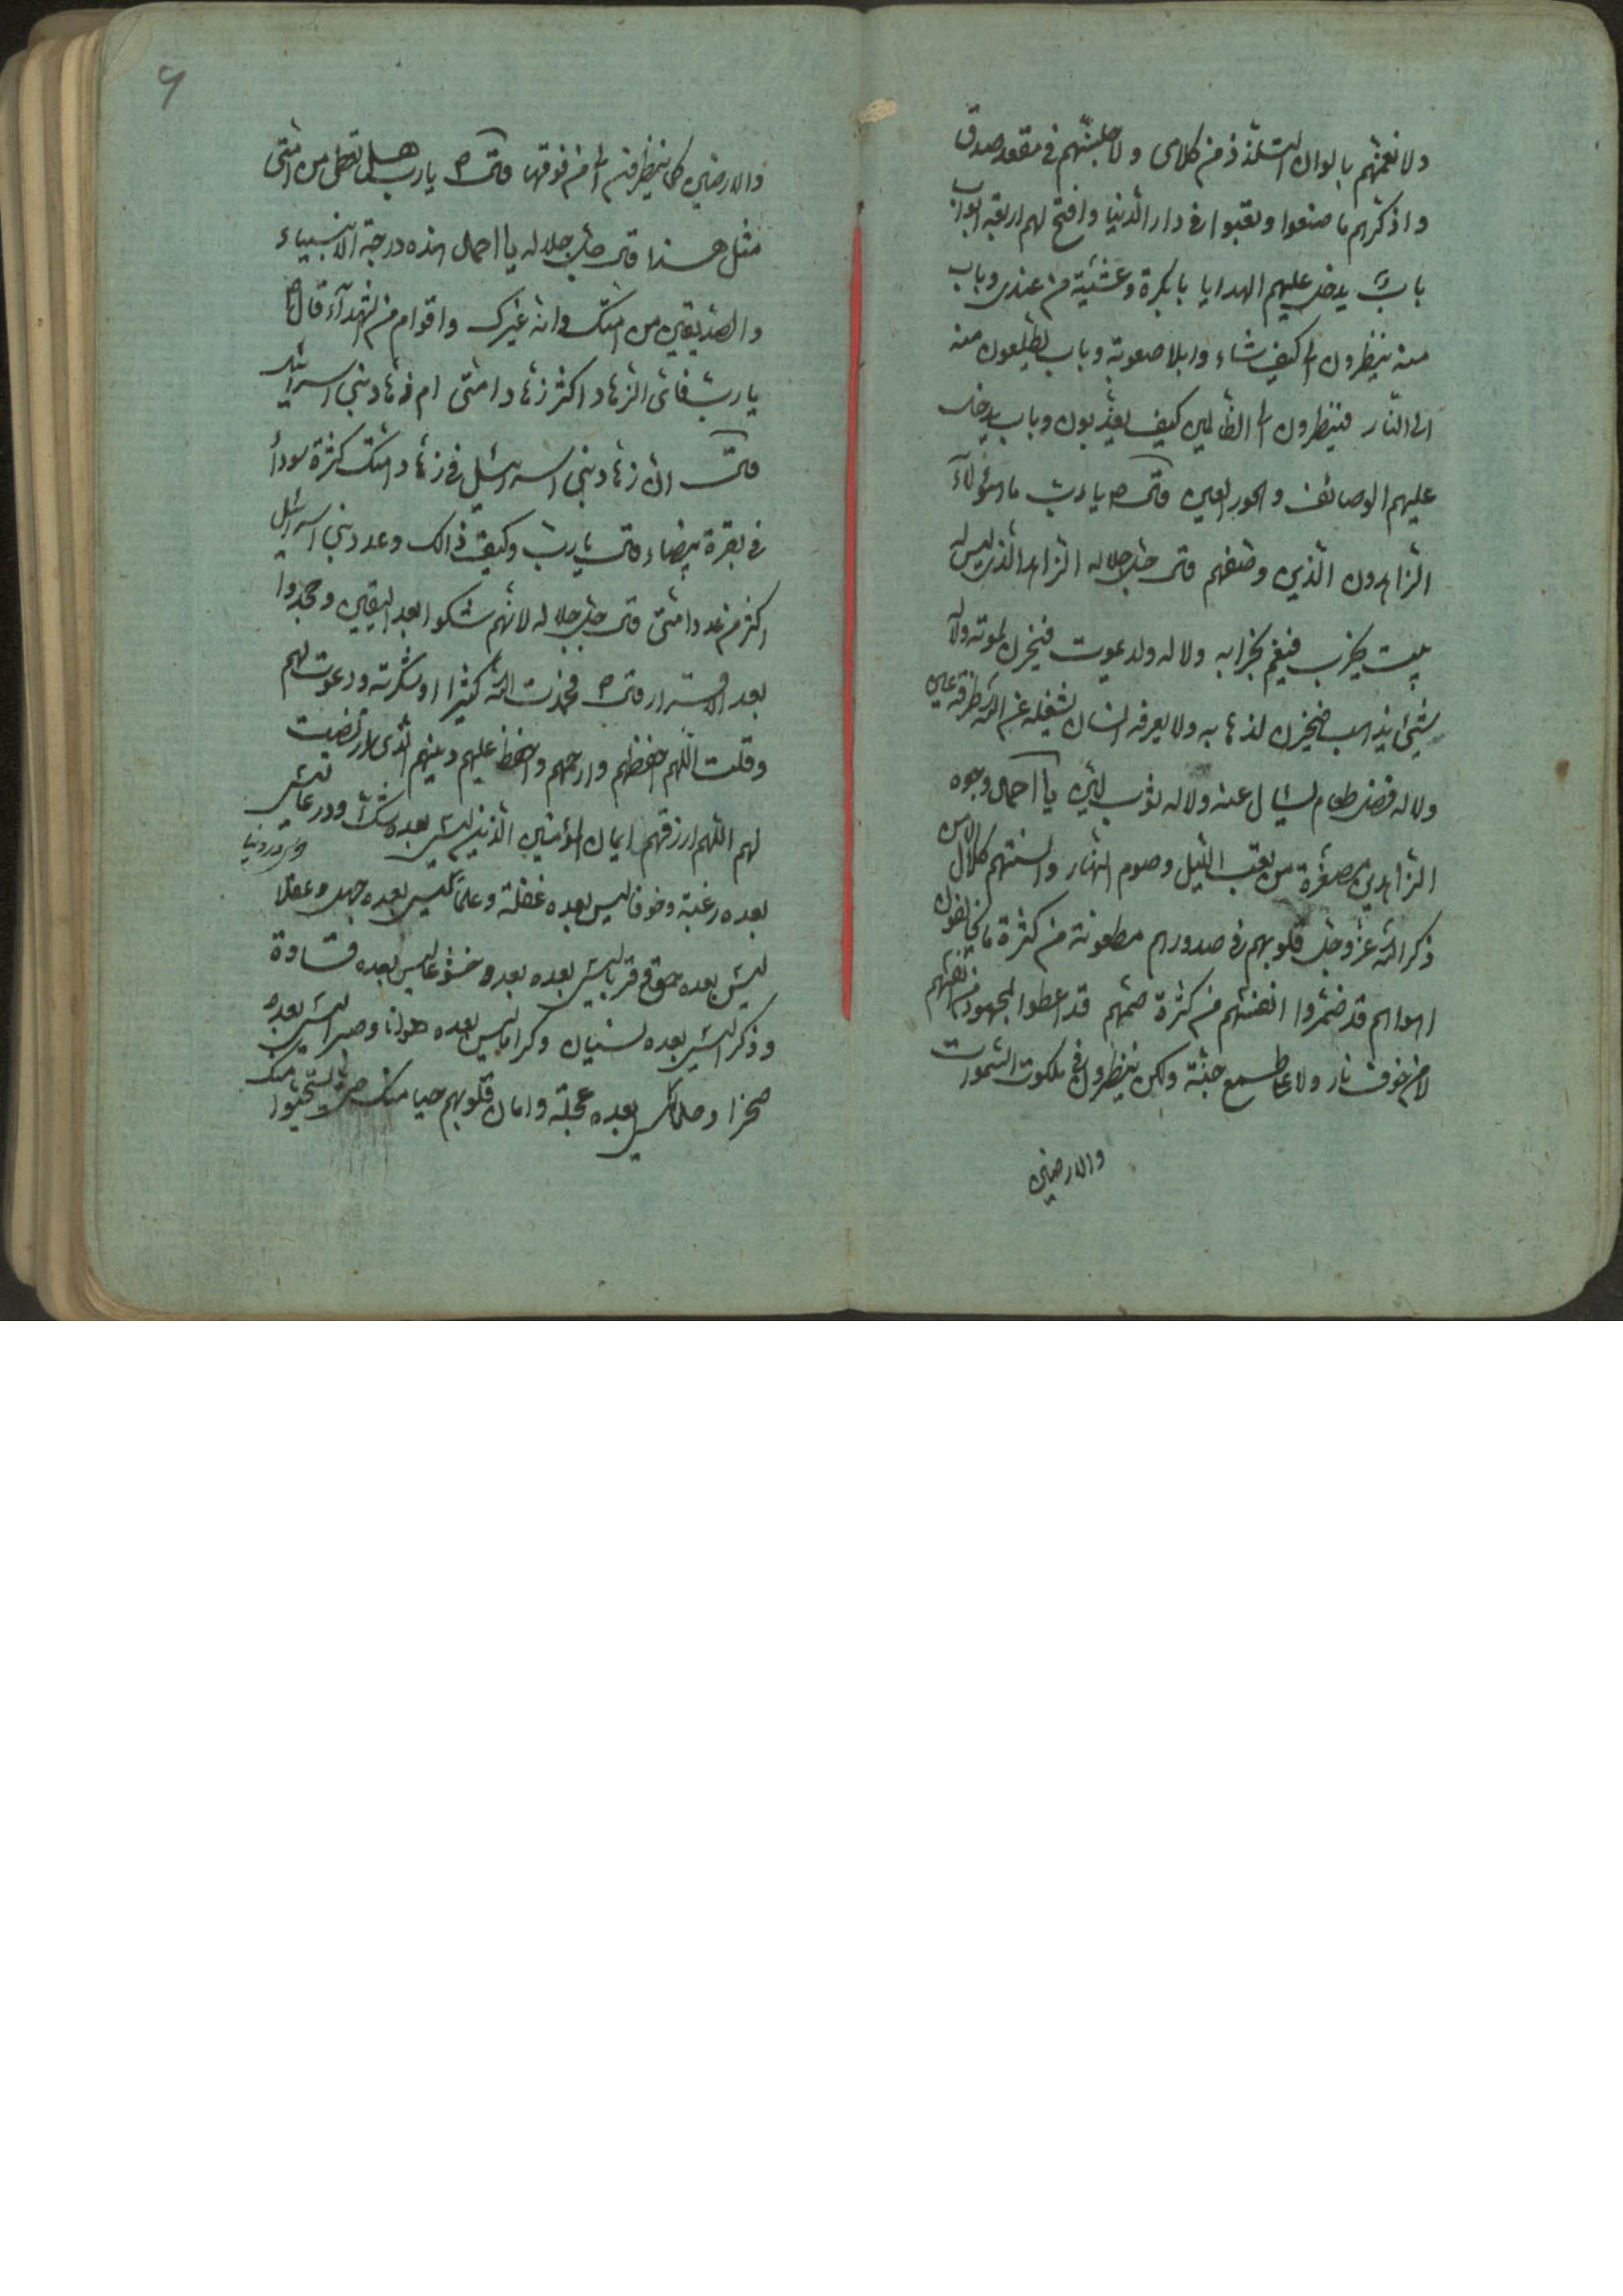 ولا نعمنهم بالوان التلذذ من كلامى ولا جلسنهم فى مقعد صدق
واذكرهم ما صنعوا وتعبوا فى دار الدنيا وافتح لهم اربعة ابواب
باب يدخل عليهم الهدايا بابكرة وعشية من عندى وباب
منه ينظرون الى كيف شاء وابلا صعوبة وباب يطلعون منه
الى النار فينظرون الى الظالمين كيف يعذبون وباب يدخل
عليهم الوصائف والحور العين قال ص يا رب ما هؤلاء
الزاهدون الذين وصفهم قال جل جلاله الزاهد الذى ليس له
بيت يخرب فيغم بخرابه ولا له ولد يموت فيحزن لموته ولا له
شيئ يذهب فيحزن لذهابه ولا يعرفه انسان يشغله عن الله طرفة عين
ولا له فضل طعام يسال عنه ولا له ثوب لين يا احمد وجوه
الزاهدين مصفرة من تعب الليل وصوم النهار والسنتهم كلال الا من
ذكر الله عز وجل قلوبهم فى صدورهم مطعونة من كثرة ما يخالفون
اهوائهم قد ضمروا انفسهم من كثرة صمتهم قد اعطوا المجهود من انفسهم
لا من خوف نار ولا على طمع جنة ولكن ينظرون فى ملكوت السموات
والارضين
والارضين كما ينظر فنم الى من فوقها قال ص يا رب هل تعطى من امتى
مثل هذا قال جل جلاله يا احمد هذه درجة الانبياء
والصديقين من امتك وانه غيرك واقوام من الشهدآء قال ص
يا رب فاى الزهاد اكثر زهاد امتى ام زهاد بنى اسرائيل
قال ان زهاد بنى اسرائيل فى زهاد امتك كثرة سودا
فى بقرة بيضاء قال يا رب وكيف ذالك وعدد بنى اسرائيل
اكثر من عدد امتى قال جل جلاله لانهم شكوا بعد اليقين وجحدوا
بعد الاقرار قال ص فحمدت الله كثيرا وشكرته ودعوت لهم
وقلت اللهم احفظهم وارحمهم واحفظ عليهم دينهم الذى ارتضيت
لهم اللهم ارزقهم ايمان المؤمنين الذين ليس بعده شك وورعا ليس
بعده رغبة وخوفا ليس بعده غفلة وعلما ليس بعده جهل وعقلا
ليس بعده حمق وقربا ليس بعده بعد وخشوعا ليس بعده قساوة
وذكرا ليس بعده نسيان وكراما ليس بعده هوانا وصبرا ليس بعده
ضجرا وحلما ليس بعده عجلة واملا قلوبهم حيا منك حتى يستحيوا منك